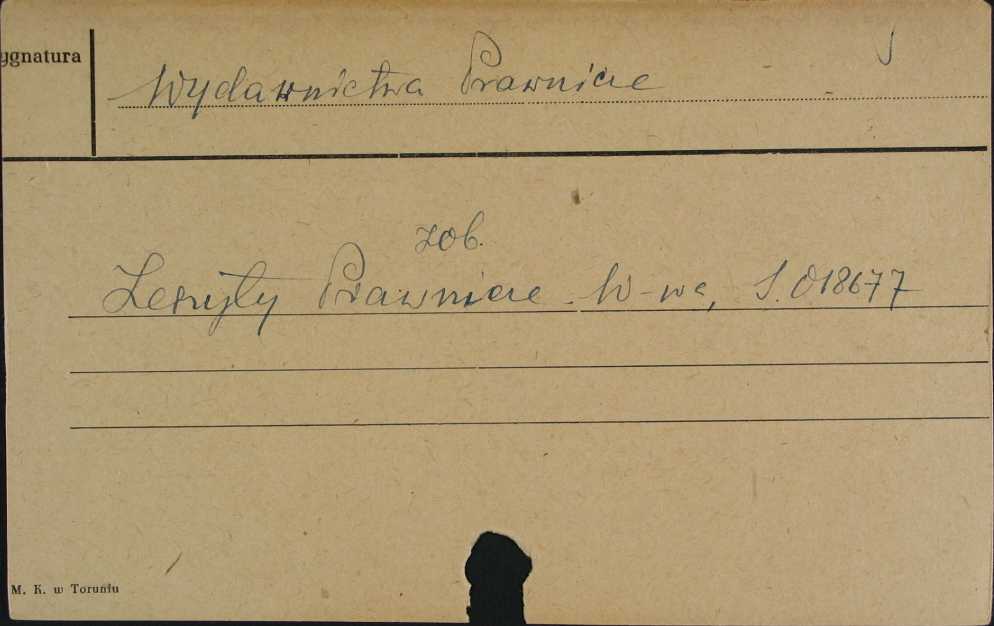 ygnatura
Wydawnictwa Prawnicze
zob.
Zeszyty Prawnicze. W-wa, S. 018677
M. K. w Toruniu